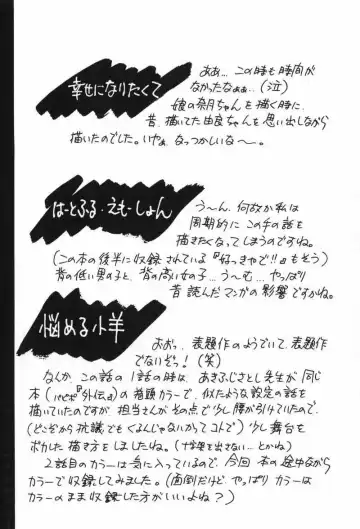 幸せになりたくて
ああ… この時も時間が
なかったなぁぁ‥(泣)
娘の朔ちゃんを描く時に、
昔、描いてた由良ちゃんを思い出しながら
描いたのでした。いやぁ、なっつかしいな〜。
はーとふる・えもーしょん
う〜ん、何故か私は
周期的にこの手の話を
描きたくなってしまうのですね。
(この本の後半に収録されている『好っきゃで!!』もそう)
背の低い男の子と、背の高い女の子…う〜む…やっぱり
昔読んだマンガの影響ですかね。
悩める小羊
おおっ、表題作のようでいて、表題作
でないぞっ!(笑)
なんか、この話の1話の時は、あきふじさとし先生が同じ
本(『パピポ外伝』)の巻頭カラーで、似たような設定の話を
描いていたのですが、担当さんがその点で少し腰が引けていたので、
(どこぞから抗議でもくるんじゃないかってコトで)少し舞台を
ボカした描き方をしましたね。(十字架を出さない…とかね)
2話目のカラーは気に入っているので、今回、本の途中ながら
カラーで収録してみました。(面倒だけど、やっぱりカラーは
カラーのまま収録した方がいいよね?)